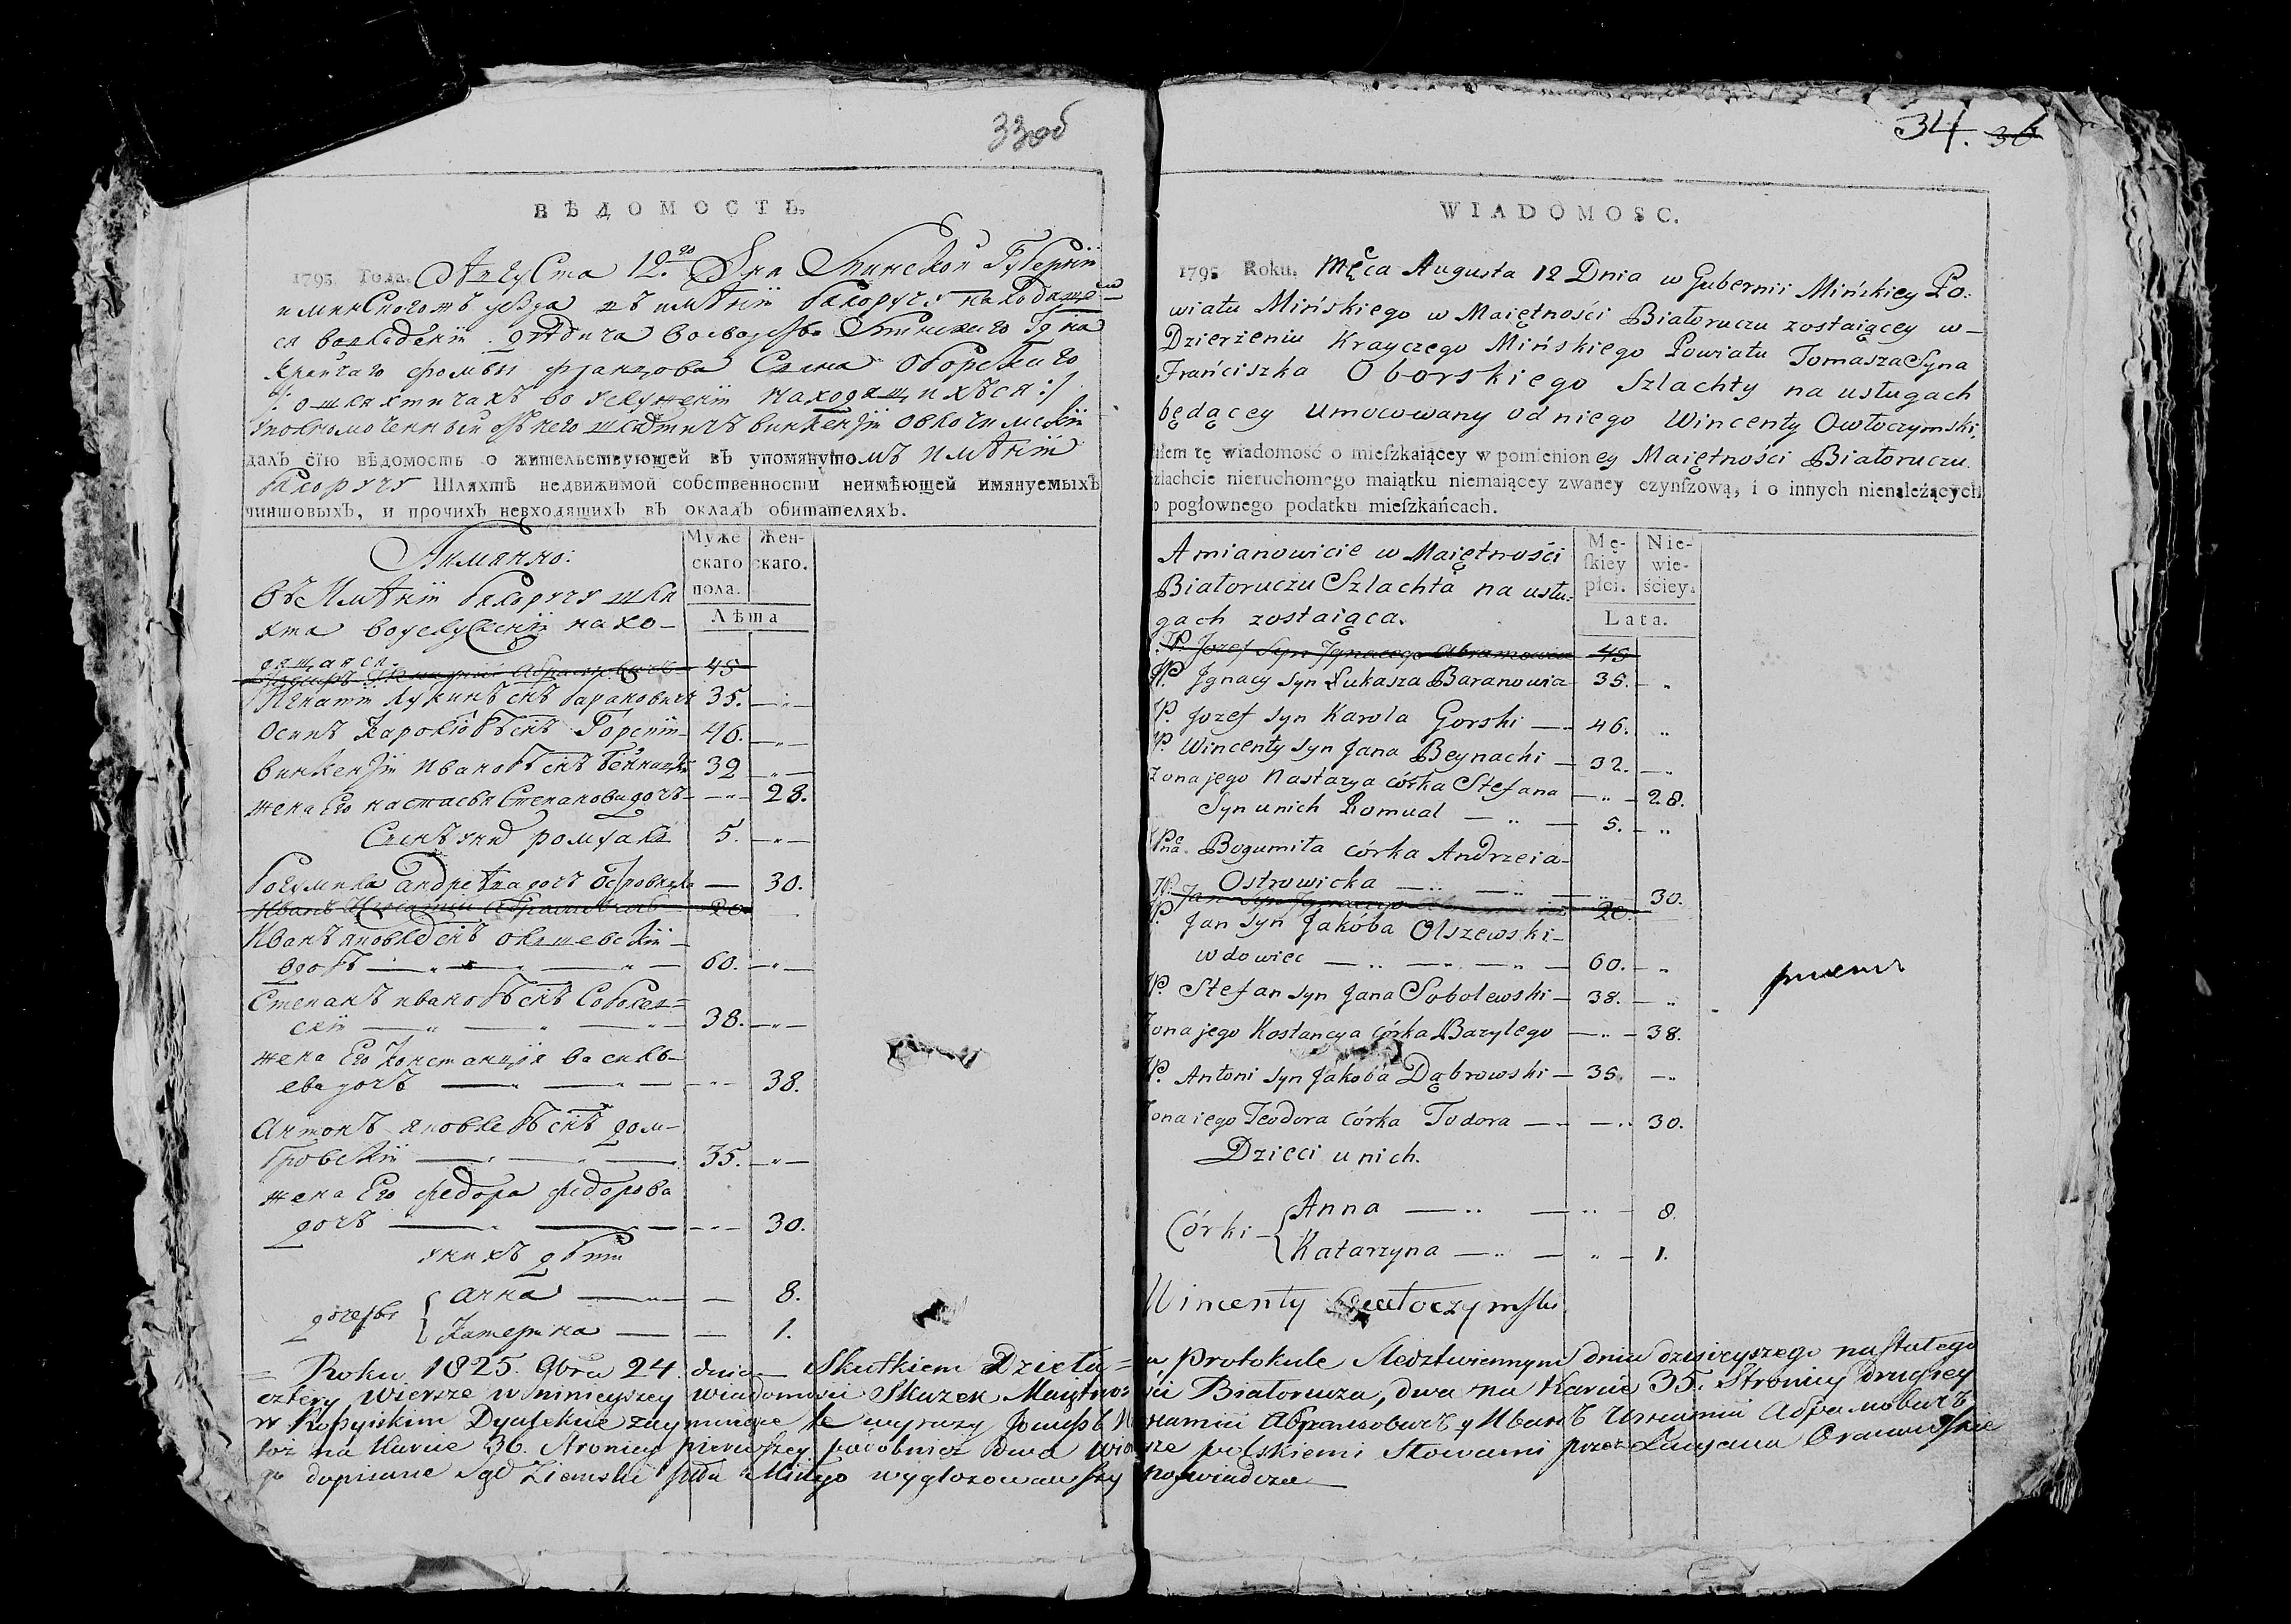 33об
ВѢДОМОСТЬ.
1795. Года. Августа 12го Дня Минской Губернïи
и минского уезда въ имѣнïи Белоручу находяще
ся во владенïи
крайчаго Фомы Францова Сына Оборскаго
/: о шляхтичахъ во услуженïи находящихъся :/
уполномоченный отъ него шляхтичъ Викентïй Овлочимскïй
далъ сïю вѣдомость о жительствующей въ упомянутомъ имѣнïи
Белоручу Шляхтѣ недвижимой собственности неимѣющей имянуемыхъ
чиншовыхъ, и прочихъ невходящихъ въ окладъ обитателяхъ.
Муже скаго пола. Жен- скаго.
Лѣта
Аимянно:
Въ Имѣнïи Белоручу шля
хта во услуженïи нахо-
дящаяся.
45
Игнатïй Лукинъ снъ Барановичъ 35.
Осипъ Каролiовъ снъ Горскïй 46.
Викентïй Ивановъ снъ Бейнацкïй 32
жена Его Настасья Степанова дочь 28.
Сынъ у них Ромуалд 5.
Богумила Андреева дочь Островицка 30.
Иванъ Игнатïй Абрамовичъ 20
Иванъ Яковлевъ снъ Олшевскïй
вдовъ 60.
Степанъ Ивановъ снъ Соболев=
скïй 38.
жена Его Констанцïя Василь-
ева дочь 38.
Антонъ Яковлевъ снъ Дом-
бровскïй 35.
жена Его Федора Федорова
дочь 30.
у нихъ дети
дочерь { Анна 8.
Катерина 1.
34. 36
WIADOMOSC.
1795 Roku. Mca Augusta 12 Dnia w Gubernii Mińskiey Po:
wiatu Mińskiego w Maiętności Białoruczu zostaiącey w
Dzierżeniu Krayczego Mińskiego Powiatu Tomasza Syna
Franciszka Oborskiego Szlachty na usługach
będącey umocowany od niego Wincenty Owłoczymski,
ałem tę wiadomość o mieszkaiącey w pomienioney Maiętności Białoruczu
zlachcie nieruchomego maiątku niemaiącey zwaney czynszową, i o innych nienależących
o pogłownego podatku mieszkańcach.
Mę- skiey płci. Nie- wie- ściey.
Lata.
A mianowicie w Maiętności
Białoruczu Szlachta na usłu:
gach zostaiąca.
JP. Jozef Syn Jgnacego Abramowicz 45
JP. Jgnacy syn Łukasza Baranowicz 35. „
JP. Jozef syn Karola Gorski 46. „
JP Wincenty syn Jana Beynachi 32. „
Zona jego Nastazya córka Stefana „ 28.
Syn u nich Romual 5. „
JPna. Bogumiła córka Andrzeia
Ostrowicka 30.
JP. Jan Syn Jgnacego 20
JP. Jan syn Jakóba Olszewski
wdowiec 60. „
JP. Stefan syn Jana Sobolewski 38. „
Zona jego Kostancya córka Bazylego „ 38.
JP. Antoni syn Jakoba Dąbrowski 35. „
Zona iego Teodora córka Todora „ 30.
Dzieci u nich.
Córki { Anna 8.
Katarzyna 1.
Wincenty Owłoczymski
= Roku 1825. 9bra 24. dnia Skutkiem Dzieła w Protokule Sledztwiennym dnia dzisieyszego nastałego
cztery wiersze w ninieyszey wiadomości Skazek Maiętności Białorucza, dwa na Karcie 35. Stronicy drugiey
w Rossyiskim Dyalekcie zaymuiące te wyrazy Иосифъ Игнатïй Абрамовичъ y Иванъ Игнатïй Абрамовичъ
toż na Karcie 36. stronicy pierwszey podobnież dwa wiersze polskiemi Słowami przez
dopisane Sąd Ziemski Pttu Mińgo poświadcza